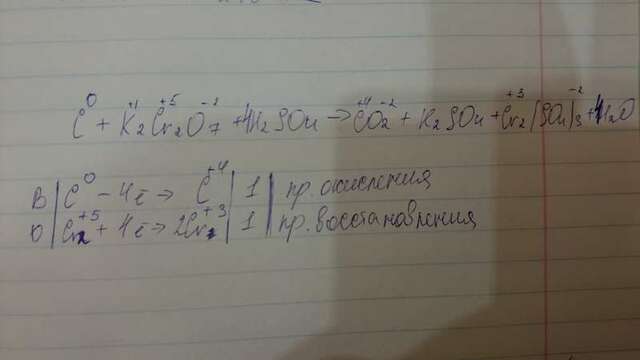 C⁰ + K₂⁺¹Cr₂⁺⁵O₇⁻² + 4H₂SO₄ → C⁺⁴O₂⁻² + K₂SO₄ + Cr₂⁺³(SO₄)₃⁻² + 4H₂O
В | C⁰ - 4ē → C⁺⁴ | 1 | пр. окисления
О | Cr₂⁺⁵ + 4ē → 2Cr₂⁺³ | 1 | пр. восстановления